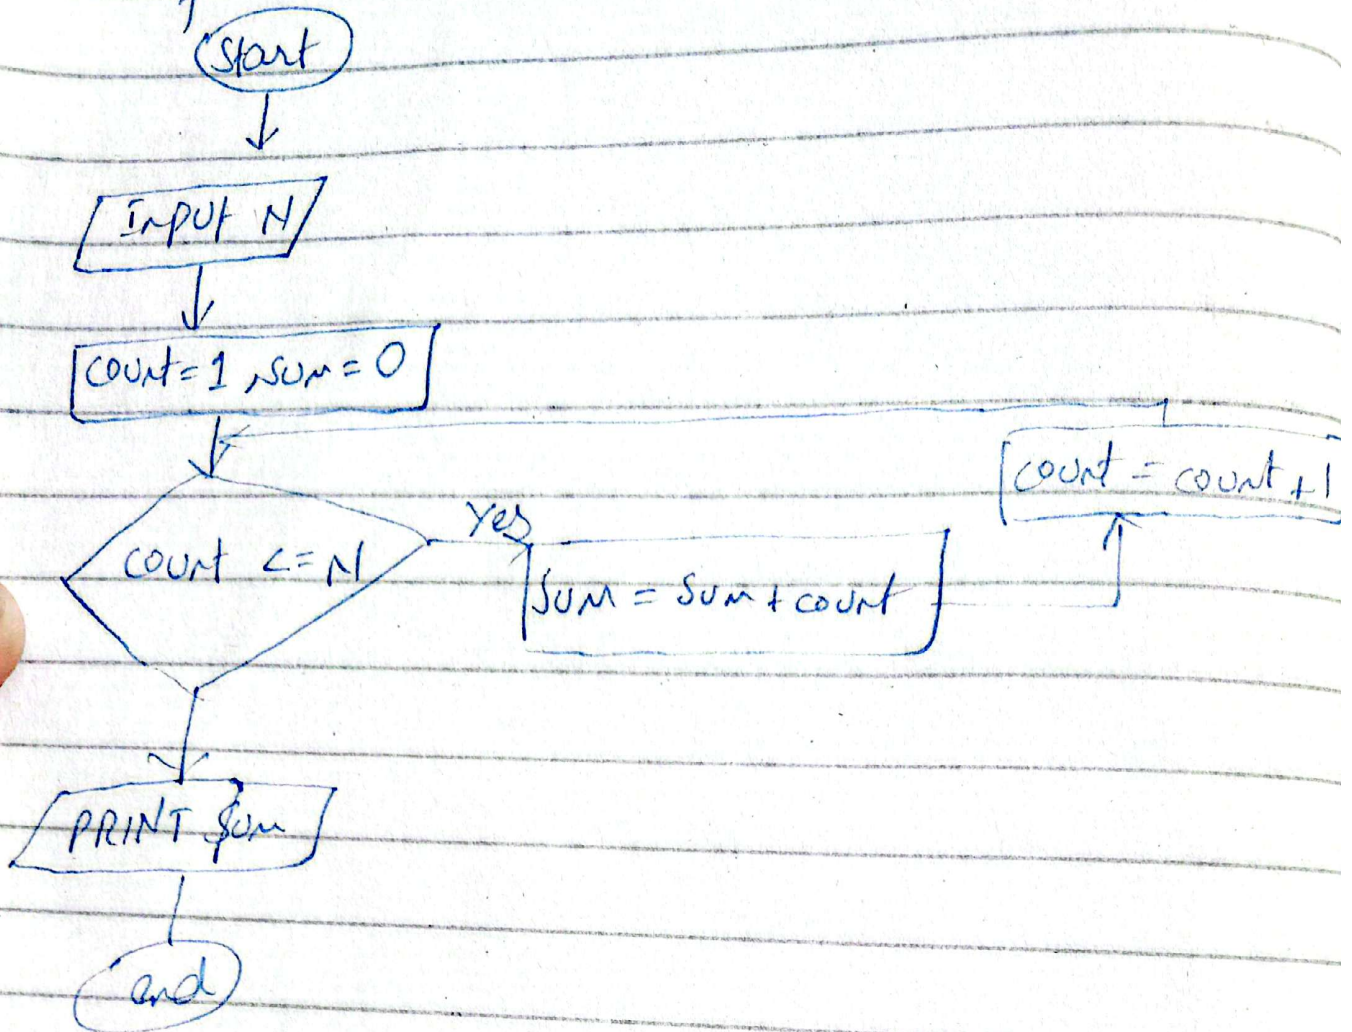 Start
INPUT N
COUNT = 1, SUM = 0
COUNT <= N
Yes
SUM = SUM + COUNT
COUNT = COUNT + 1
PRINT SUM
end